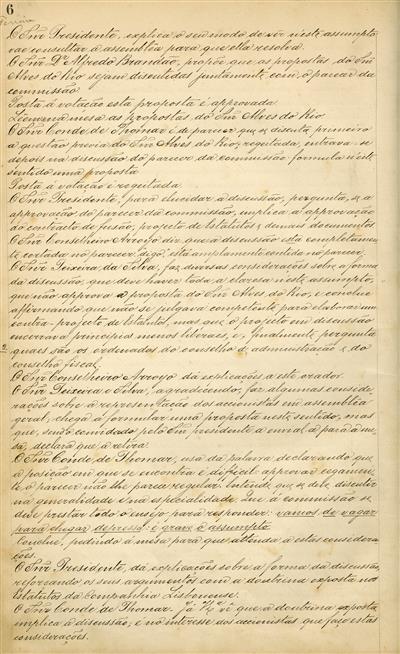 6
O Snr Presidente, explica o seu modo de ver n'este assumpto
vae consultar a assembléa para que ella resolva.
O Snr Dr Alfredo Brandão, propõe que as propostas do Snr
Alves do Rio sejam discutidas juntamente com o parecer da
commissão
Posta á votação esta proposta é approvada
Lieram na mesa as propostas do Snr Alves do Rio
O Snr Conde de Thomar é de parecer que se discuta primeiro
a questão previa do Snr Alves do Rio, regeitada, entrava-se
depois na discussão do parecer da commissão formula n'este
sentido uma proposta
Posta á votação é regeitada
O Snr Presidente, para elucidar a discussão, pergunta, se a
approvação do parecer da commissão, implica a approvação
do contracto de fusão, projecto de Estatutos e demais documentos
O Snr Conselheiro Arroyo diz que a discussão está completamen-
te cortada no parecer, digo, está amplamente contida no parecer.
O Snr Teixeira da Silva, faz diversas considerações sobre a forma
da discussão, que deve haver toda a clareza n'este assumpto,
que não approva a proposta do Snr Alves do Rio, e conclue
affirmando que não se julgava competente para elaborar um
contra-projecto de Estatutos, mas que o projecto em discussão
encerrava principios menos liberaes, e, finalmente pergunta
quaes são os ordenados do conselho d'administração e do
conselho fiscal.
O Snr Conselheiro Arroyo dá explicações a este orador.
O Snr Teixeira e Silva, agradecendo, faz algumas conside-
rações sobre a representação dos accionistas em assembléa
geral, chega a formular uma proposta n'este sentido, mas
que, sendo convidado pelo Snr presidente a enval-a para a me-
sa, declara que a retira.
O Snr Conde de Thomar, usa da palavra declarando que
a posição em que se encontra é dificil: approvar cegamen-
te o parecer não lhe parece regular. Entende que se deve discutir
na generalidade e na especialidade. Que a commissão se
deve prestar todo o ensejo para responder: vamos de vagar
para chegar depressa: é grave o assumpto.
Conclue, pedindo á mesa para que attenda a estas considera-
ções.
O Snr Presidente, da explicações sobre a forma da discussão,
reforçando os seus argumentos com a doutrina exposta nos
Estatutos da Companhia Lisbonense.
O Snr Conde de Thomar. Já vê que a doutrina exposta
implica a discussão; é no interesse dos accionistas que faço estas
considerações.